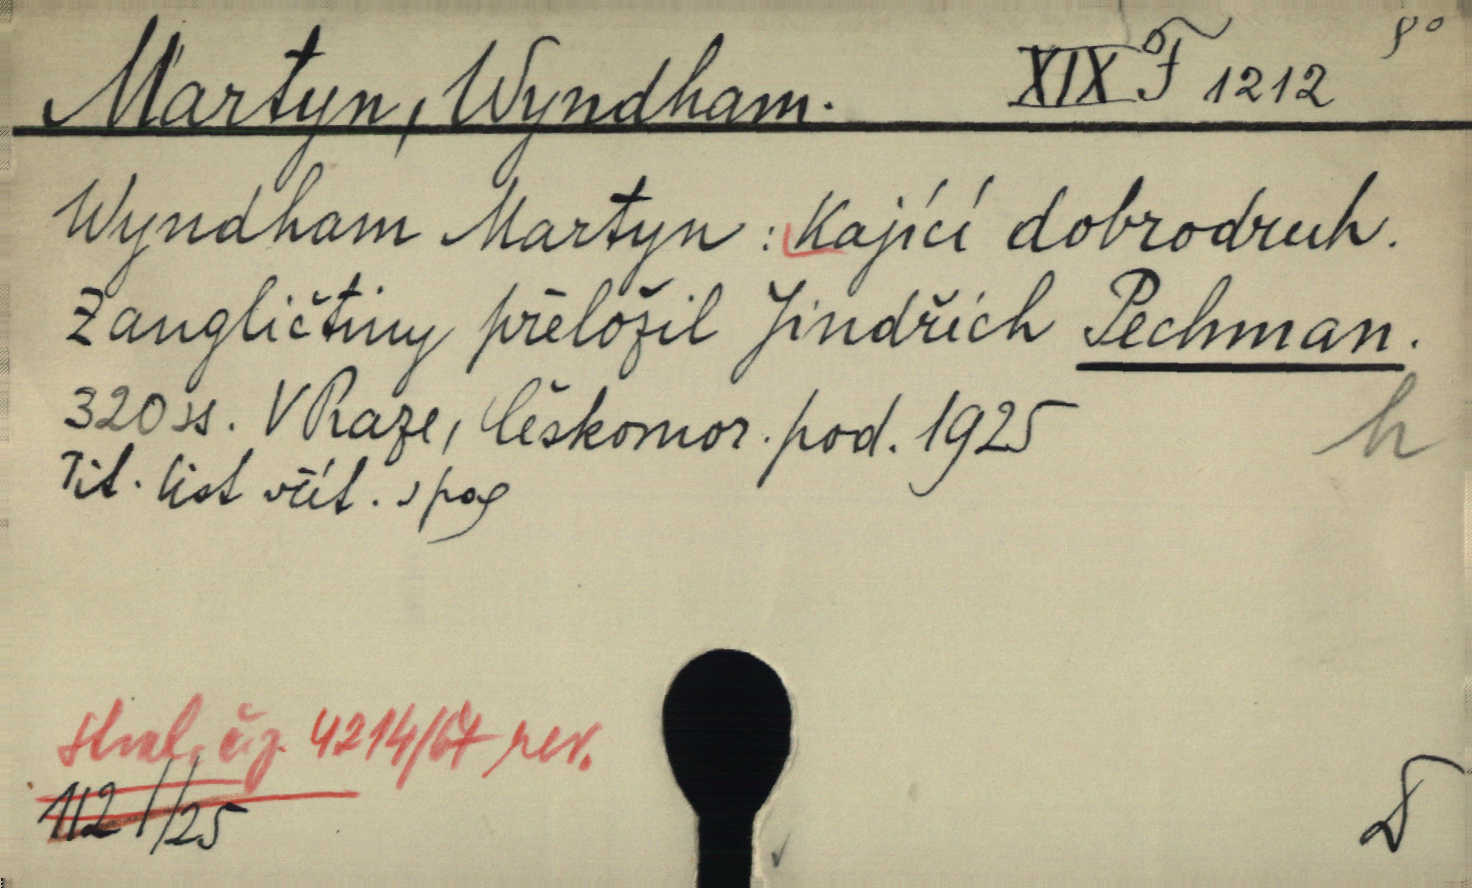 Martyn, Wyndham. XIX F 1212 8°
Wyndham Martyn: Kající dobrodruh.
Z angličtiny přeložil Jindřich Pechman.
320 ss. V Praze, Českomor. pod. 1925
h
Tit. list včít. s pag
4214/67 rev.
112 / 25